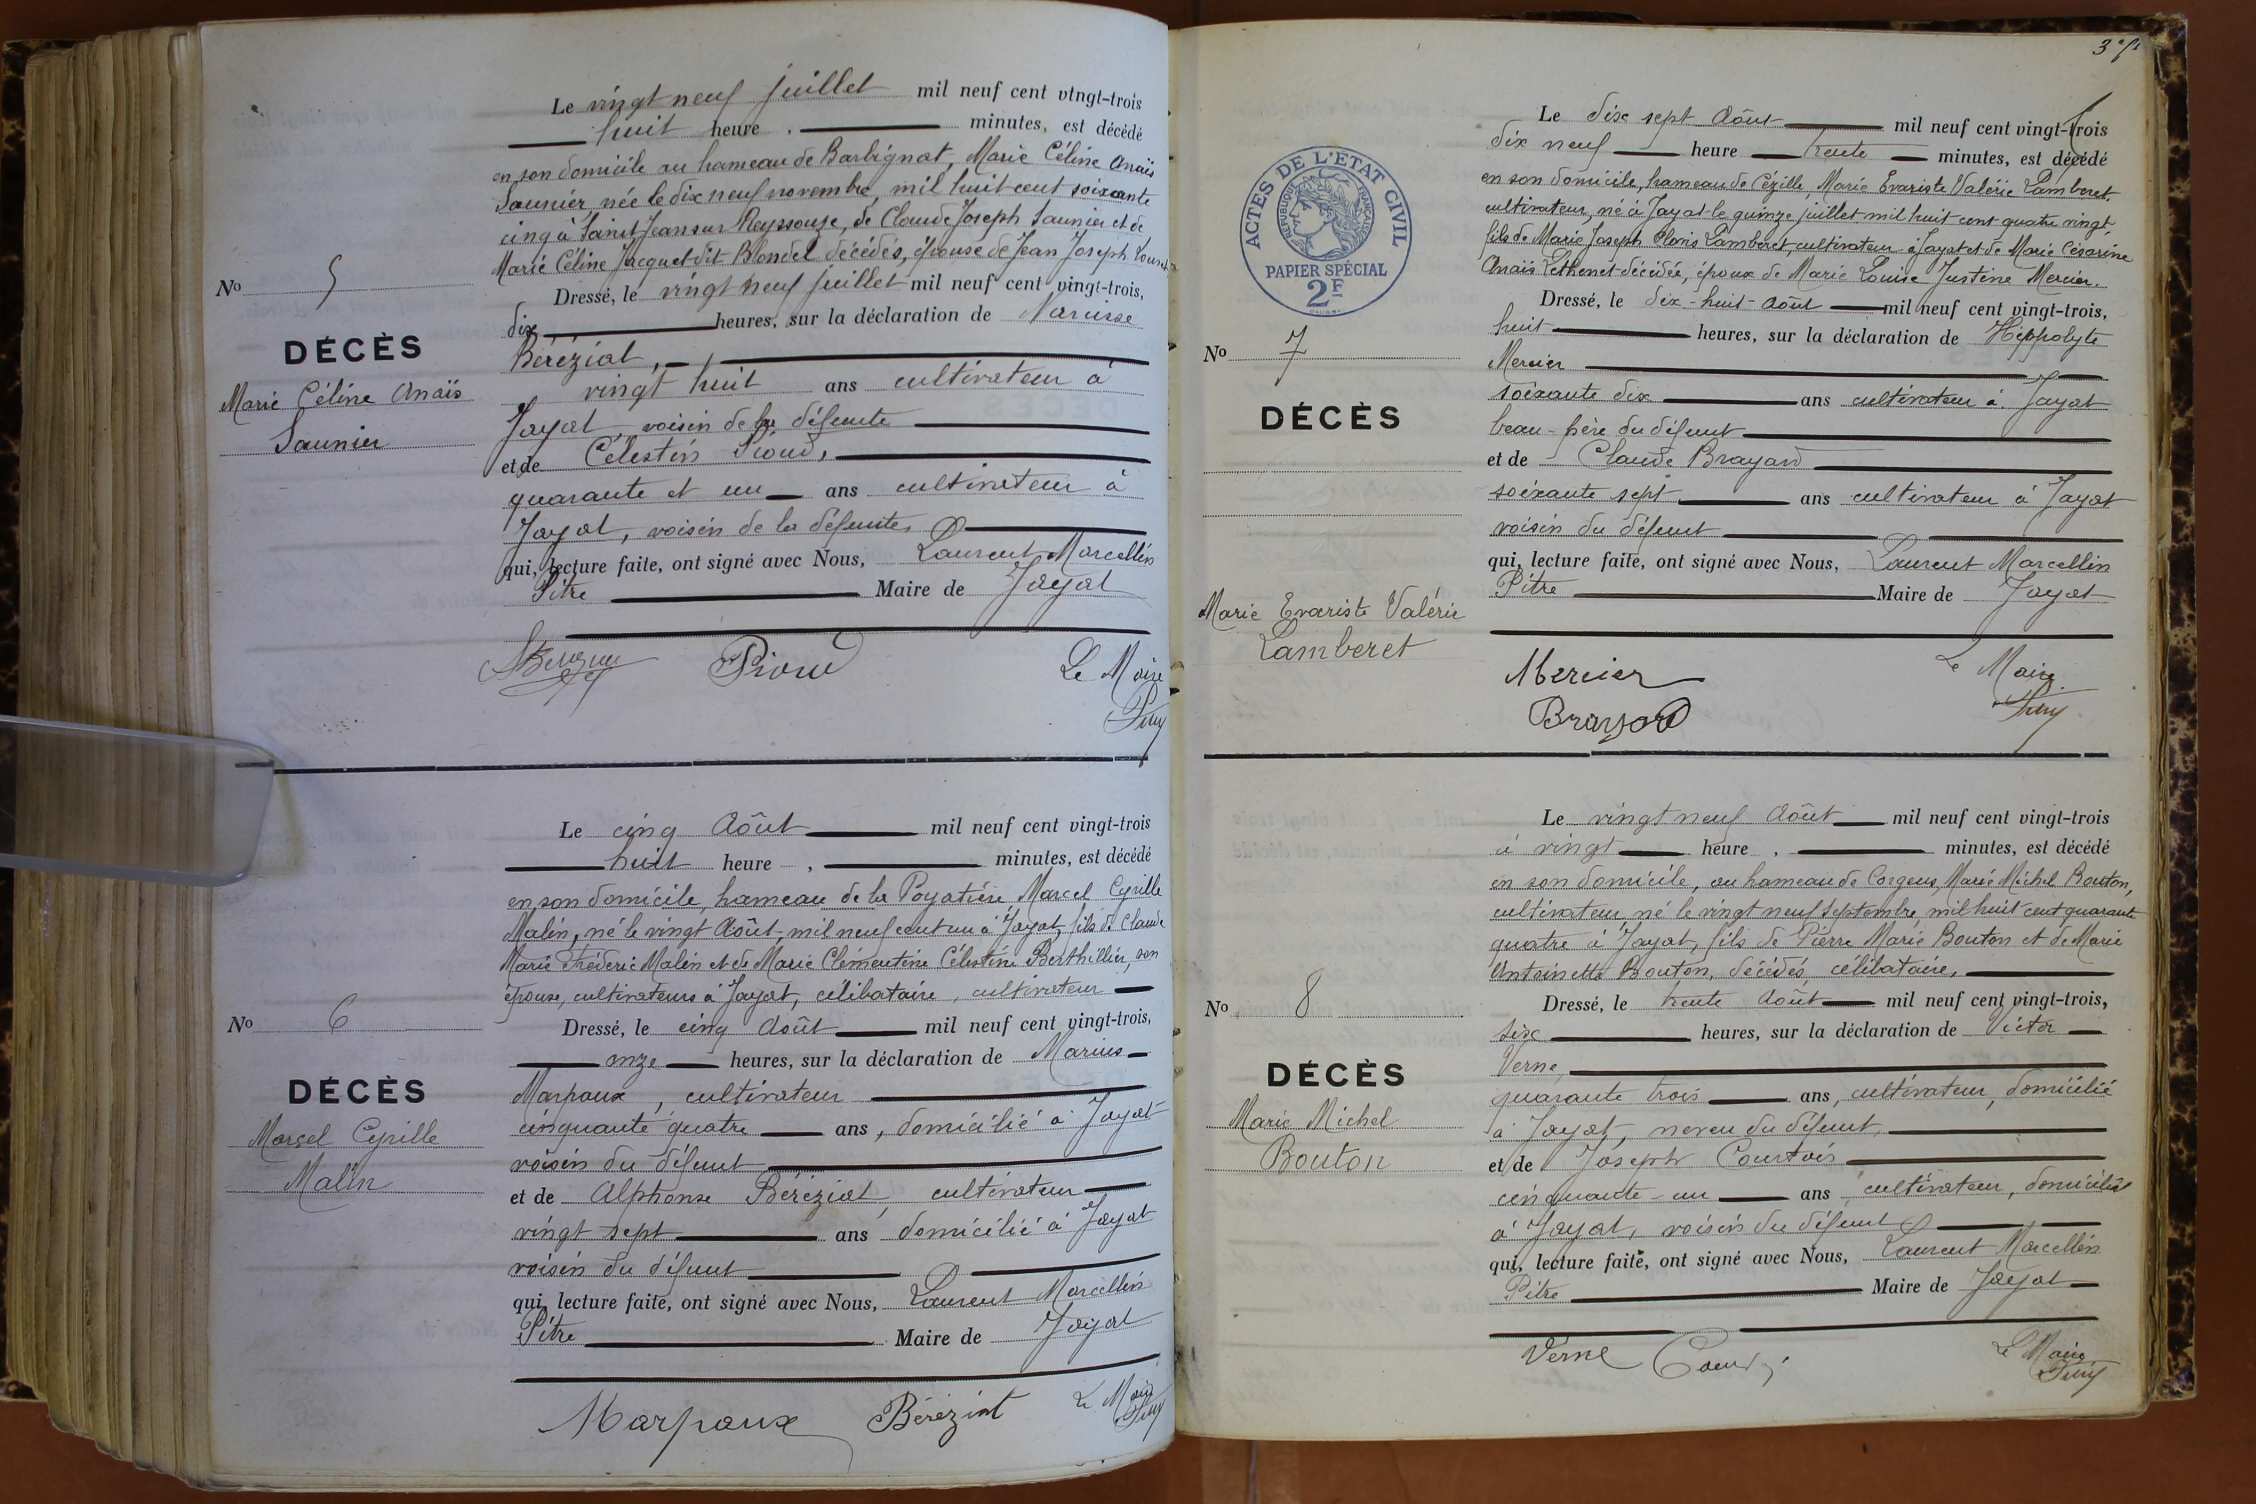 Le vingt neuf juillet mil neuf cent vingt-trois
huit heure . minutes, est décédé
en son domicile au hameau de Barbignat, Marie Céline Anaïs
Saunier, née le dix neuf novembre, mil huit cent soixante
cinq à Saint Jean sur Reyssouze, de Claude Joseph Saunier et de
Marie Céline Jacquet dit Blondel décédés, épouse de Jean Joseph
Dressé, le vingt neuf juillet mil neuf cent vingt-trois,
dix heures, sur la déclaration de Narcisse
Béréziat,
vingt huit ans cultivateur à
Jayat, voisin de la défunte
et de Célestin Pioud,
quarante et un ans cultivateur à
Jayat, voisin de la défunte,
qui, lecture faite, ont signé avec Nous, Laurent Marcellin
Pitre Maire de Jayat
No 5
DÉCÈS
Marie Céline Anaïs
Saunier
Pioud Le Maire
Le cinq Août mil neuf cent vingt-trois
huit heure , minutes, est décédé
en son domicile, hameau de la Poyatière, Marcel Cyrille
Malin, né le vingt Août mil neuf cent un à Jayat, fils de Claude
Marie Fréderic Malin et de Marie Clémentine Célestine Berthillier, son
épouse, cultivateurs à Jayat, célibataire, cultivateur
Dressé, le cinq Août mil neuf cent vingt-trois,
onze heures, sur la déclaration de Marius
Marpaux, cultivateur
cinquante quatre ans, domicilié à Jayat
voisin du défunt
et de Alphonse Béréziat, cultivateur
vingt sept ans domicilié à Jayat
voisin du défunt
qui, lecture faite, ont signé avec Nous, Laurent Marcellin
Pitre Maire de Jayat
No 6
DÉCÈS
Marcel Cyrille
Malin
Marpaux Béréziat Le Maire
ACTES DE L'ETAT CIVIL
REPUBLIQUE FRANÇAISE
PAPIER SPÉCIAL
2F
Le dix sept Août mil neuf cent vingt-trois
dix neuf heure trente minutes, est décédé
en son domicile, hameau de Cézille, Marie Evariste Valérie Lamberet,
cultivateur, né à Jayat le quinze juillet mil huit cent quatre vingt,
fils de Marie Joseph Floris Lamberet, cultivateur à Jayat et de Marie Césarine
Anaïs Lethenet décédée, époux de Marie Louise Justine Mercier.
Dressé, le dix-huit Août mil neuf cent vingt-trois,
huit heures, sur la déclaration de Hippolyte
Mercier
soixante dix ans cultivateur à Jayat
beau-père du défunt
et de Claude Brayard
soixante sept ans cultivateur à Jayat
voisin du défunt
qui, lecture faite, ont signé avec Nous, Laurent Marcellin
Pitre Maire de Jayat
No 7
DÉCÈS
Marie Evariste Valérie
Lamberet
Mercier Le Maire
Brayard
Le vingt neuf Août mil neuf cent vingt-trois
à vingt heure , minutes, est décédé
en son domicile, au hameau de Corgeus, Marie Michel Bouton,
cultivateur, né le vingt neuf Septembre, mil huit cent quarante
quatre à Jayat, fils de Pierre Marie Bouton et de Marie
Antoinette Bouton, décédés, célibataire,
Dressé, le trente Août mil neuf cent vingt-trois,
six heures, sur la déclaration de Victor
Verne,
quarante trois ans, cultivateur, domicilié
à Jayat, neveu du défunt,
et de Joseph Courtois
cinquante-un ans, cultivateur, domicilié
à Jayat, voisin du défunt
qui, lecture faite, ont signé avec Nous, Laurent Marcellin
Pitre Maire de Jayat
No 8
DÉCÈS
Marie Michel
Bouton
Verne Le Maire